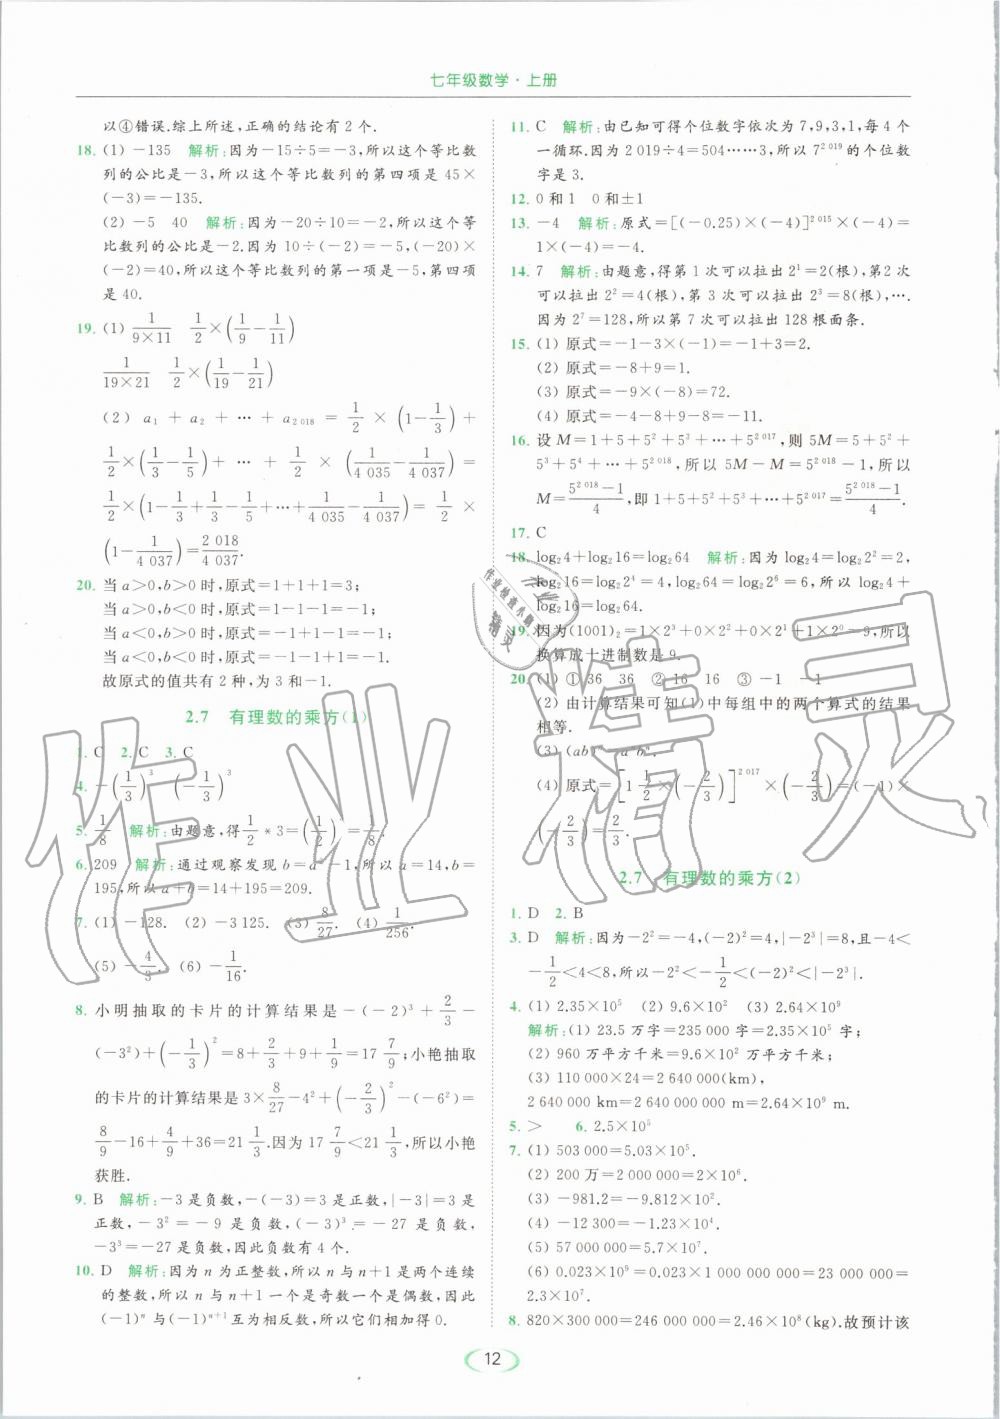 七年级数学·上册
以④错误.综上所述,正确的结论有2个.
18. (1) -135 解析:因为-15÷5=-3,所以这个等比数
列的公比是-3,所以这个等比数列的第四项是45×
(-3)=-135.
(2) -5 40 解析:因为-20÷10=-2,所以这个等
比数列的公比是-2.因为10÷(-2)=-5,(-20)×
(-2)=40,所以这个等比数列的第一项是-5,第四项
是40.
19. (1) 1/(9×11) 1/2×(1/9-1/11)
1/(19×21) 1/2×(1/19-1/21)
(2) a₁+a₂+…+a₂₀₁₈=1/2×(1-1/3)+
1/2×(1/3-1/5)+…+1/2×(1/4 035-1/4 037)=
1/2×(1-1/3+1/3-1/5+…+1/4 035-1/4 037)=1/2×
(1-1/4 037)=2 018/4 037.
20. 当a>0,b>0时,原式=1+1+1=3;
当a>0,b<0时,原式=1-1-1=-1;
当a<0,b>0时,原式=-1+1-1=-1;
当a<0,b<0时,原式=-1-1+1=-1.
故原式的值共有2种,为3和-1.
2.7 有理数的乘方(1)
1. C 2. C 3. C
4. -(1/3)³ (-1/3)³
5. 1/8 解析:由题意,得1/2*3=(1/2)³=1/8.
6. 209 解析:通过观察发现b=a²-1,所以a=14,b=
195,所以a+b=14+195=209.
7. (1) -128. (2) -3 125. (3) 8/27. (4) 1/256.
(5) -4/3. (6) -1/16.
8. 小明抽取的卡片的计算结果是-(-2)³+2/3-
(-3²)+(-1/3)²=8+2/3+9+1/9=17 7/9;小艳抽取
的卡片的计算结果是3×8/27-4²+(-2/3)²-(-6²)=
8/9-16+4/9+36=21 1/3.因为17 7/9<21 1/3,所以小艳
获胜.
9. B 解析:-3是负数,-(-3)=3是正数,|-3|=3是
正数,-3²=-9是负数,(-3)³=-27是负数,
-3³=-27是负数,因此负数有4个.
10. D 解析:因为n为正整数,所以n与n+1是两个连续
的整数,所以n与n+1一个是奇数一个是偶数,因此
(-1)ⁿ与(-1)ⁿ⁺¹互为相反数,所以它们相加得0.
11. C 解析:由已知可得个位数字依次为7,9,3,1,每4个
一循环.因为2 019÷4=504……3,所以7²⁰¹⁹的个位数
字是3.
12. 0和1 0和±1
13. -4 解析:原式=[(-0.25)×(-4)]²⁰¹⁵×(-4)=
1×(-4)=-4.
14. 7 解析:由题意,得第1次可以拉出2¹=2(根),第2次
可以拉出2²=4(根),第3次可以拉出2³=8(根),….
因为2⁷=128,所以第7次可以拉出128根面条.
15. (1) 原式=-1-3×(-1)=-1+3=2.
(2) 原式=-8+9=1.
(3) 原式=-9×(-8)=72.
(4) 原式=-4-8+9-8=-11.
16. 设M=1+5+5²+5³+…+5²⁰¹⁷,则5M=5+5²+
5³+5⁴+…+5²⁰¹⁸,所以5M-M=5²⁰¹⁸-1,所以
M=(5²⁰¹⁸-1)/4,即1+5+5²+5³+…+5²⁰¹⁷=(5²⁰¹⁸-1)/4.
17. C
18. log₂4+log₂16=log₂64 解析:因为log₂4=log₂2²=2,
log₂16=log₂2⁴=4,log₂64=log₂2⁶=6,所以log₂4+
log₂16=log₂64.
19. 因为(1001)₂=1×2³+0×2²+0×2¹+1×2⁰=9,所以
换算成十进制数是9.
20. (1) ① 36 36 ② 16 16 ③ -1 -1
(2) 由计算结果可知(1)中每组中的两个算式的结果
相等.
(3) (ab)ⁿ=aⁿbⁿ.
(4) 原式=[1 1/2×(-2/3)]²⁰¹⁷×(-2/3)=(-1)×
(-2/3)=2/3.
2.7 有理数的乘方(2)
1. D 2. B
3. D 解析:因为-2²=-4,(-2)²=4,|-2³|=8,且-4<
-1/2<4<8,所以-2²<-1/2<(-2)²<|-2³|.
4. (1) 2.35×10⁵ (2) 9.6×10² (3) 2.64×10⁹
解析:(1) 23.5万字=235 000字=2.35×10⁵字;
(2) 960万平方千米=9.6×10²万平方千米;
(3) 110 000×24=2 640 000(km),
2 640 000 km=2 640 000 000 m=2.64×10⁹ m.
5. > 6. 2.5×10⁵
7. (1) 503 000=5.03×10⁵.
(2) 200万=2 000 000=2×10⁶.
(3) -981.2=-9.812×10².
(4) -12 300=-1.23×10⁴.
(5) 57 000 000=5.7×10⁷.
(6) 0.023×10⁹=0.023×1 000 000 000=23 000 000=
2.3×10⁷.
8. 820×300 000=246 000 000=2.46×10⁸(kg).故预计该
12
作业精灵
作业检查小助手
精灵